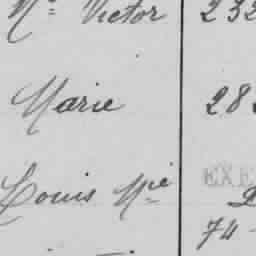 Nº Victor 232
Marie 28
Louis Mie EXE
74